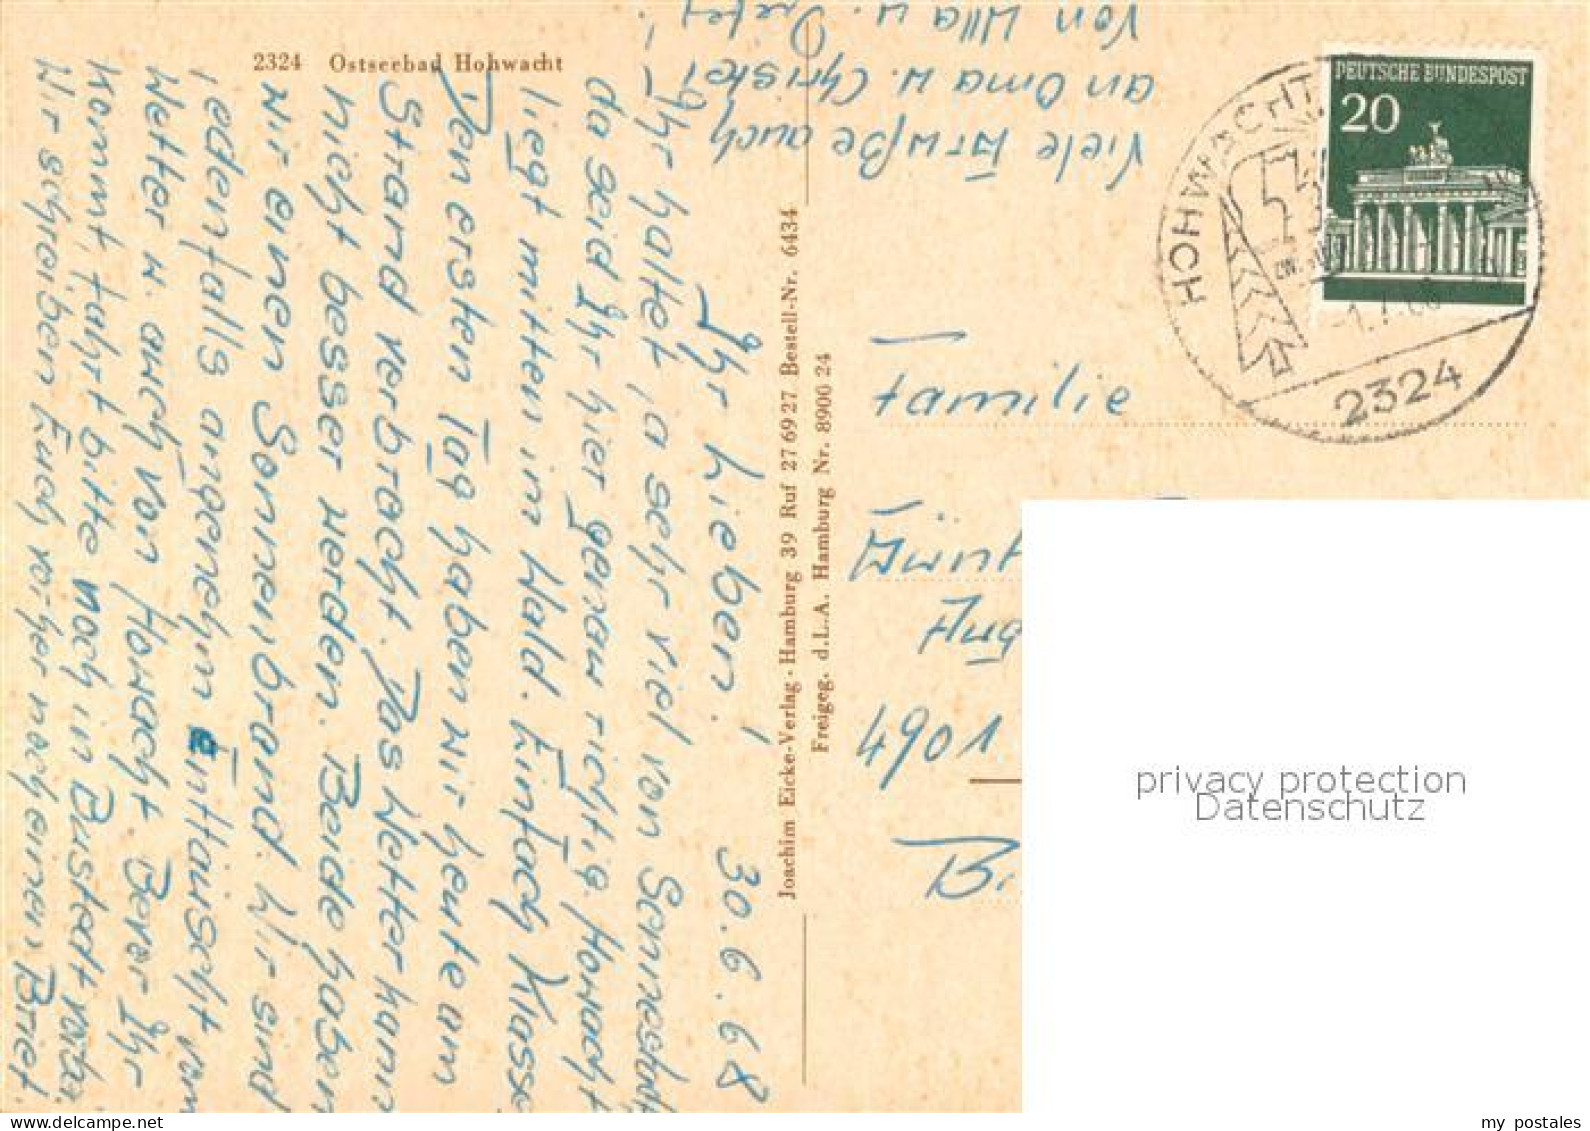 2324 Ostseebad Hohwacht
Ihr Lieben! 30.6.68
Ihr haltet ja sehr viel von Sonnestatt
da seid Ihr hier genau richtig. Howacht
liegt mitten im Wald. Einfach Klasse
Den ersten Tag haben wir heute am
Strand verbracht. Das Wetter kann
nicht besser werden. Beide haben
wir einen Sonnenbrand. Wir sind
jedenfalls angenehm enttäuscht vom
Wetter u. auch von Howacht. Bevor Ihr
kommt, fahrt bitte noch in Bustedt vorbei.
Wir schreiben Euch vorher noch einen Brief.
Viele Grüße auch
an Oma u. Christel
von Ulla u. Dieter!
Joachim Eicke-Verlag · Hamburg 39 Ruf 27 69 27 Bestell-Nr. 6434
Freigeg. d. L.A. Hamburg Nr. 8900 24
DEUTSCHE BUNDESPOST
20
HOHWACHT
2324
Familie
Günt
Aug
4901
privacy protection
Datenschutz
my postales